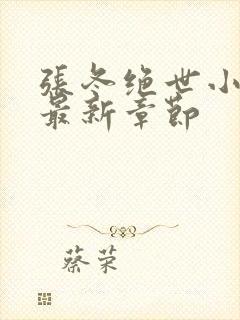 張冬绝世小
最新章節
蔡荣